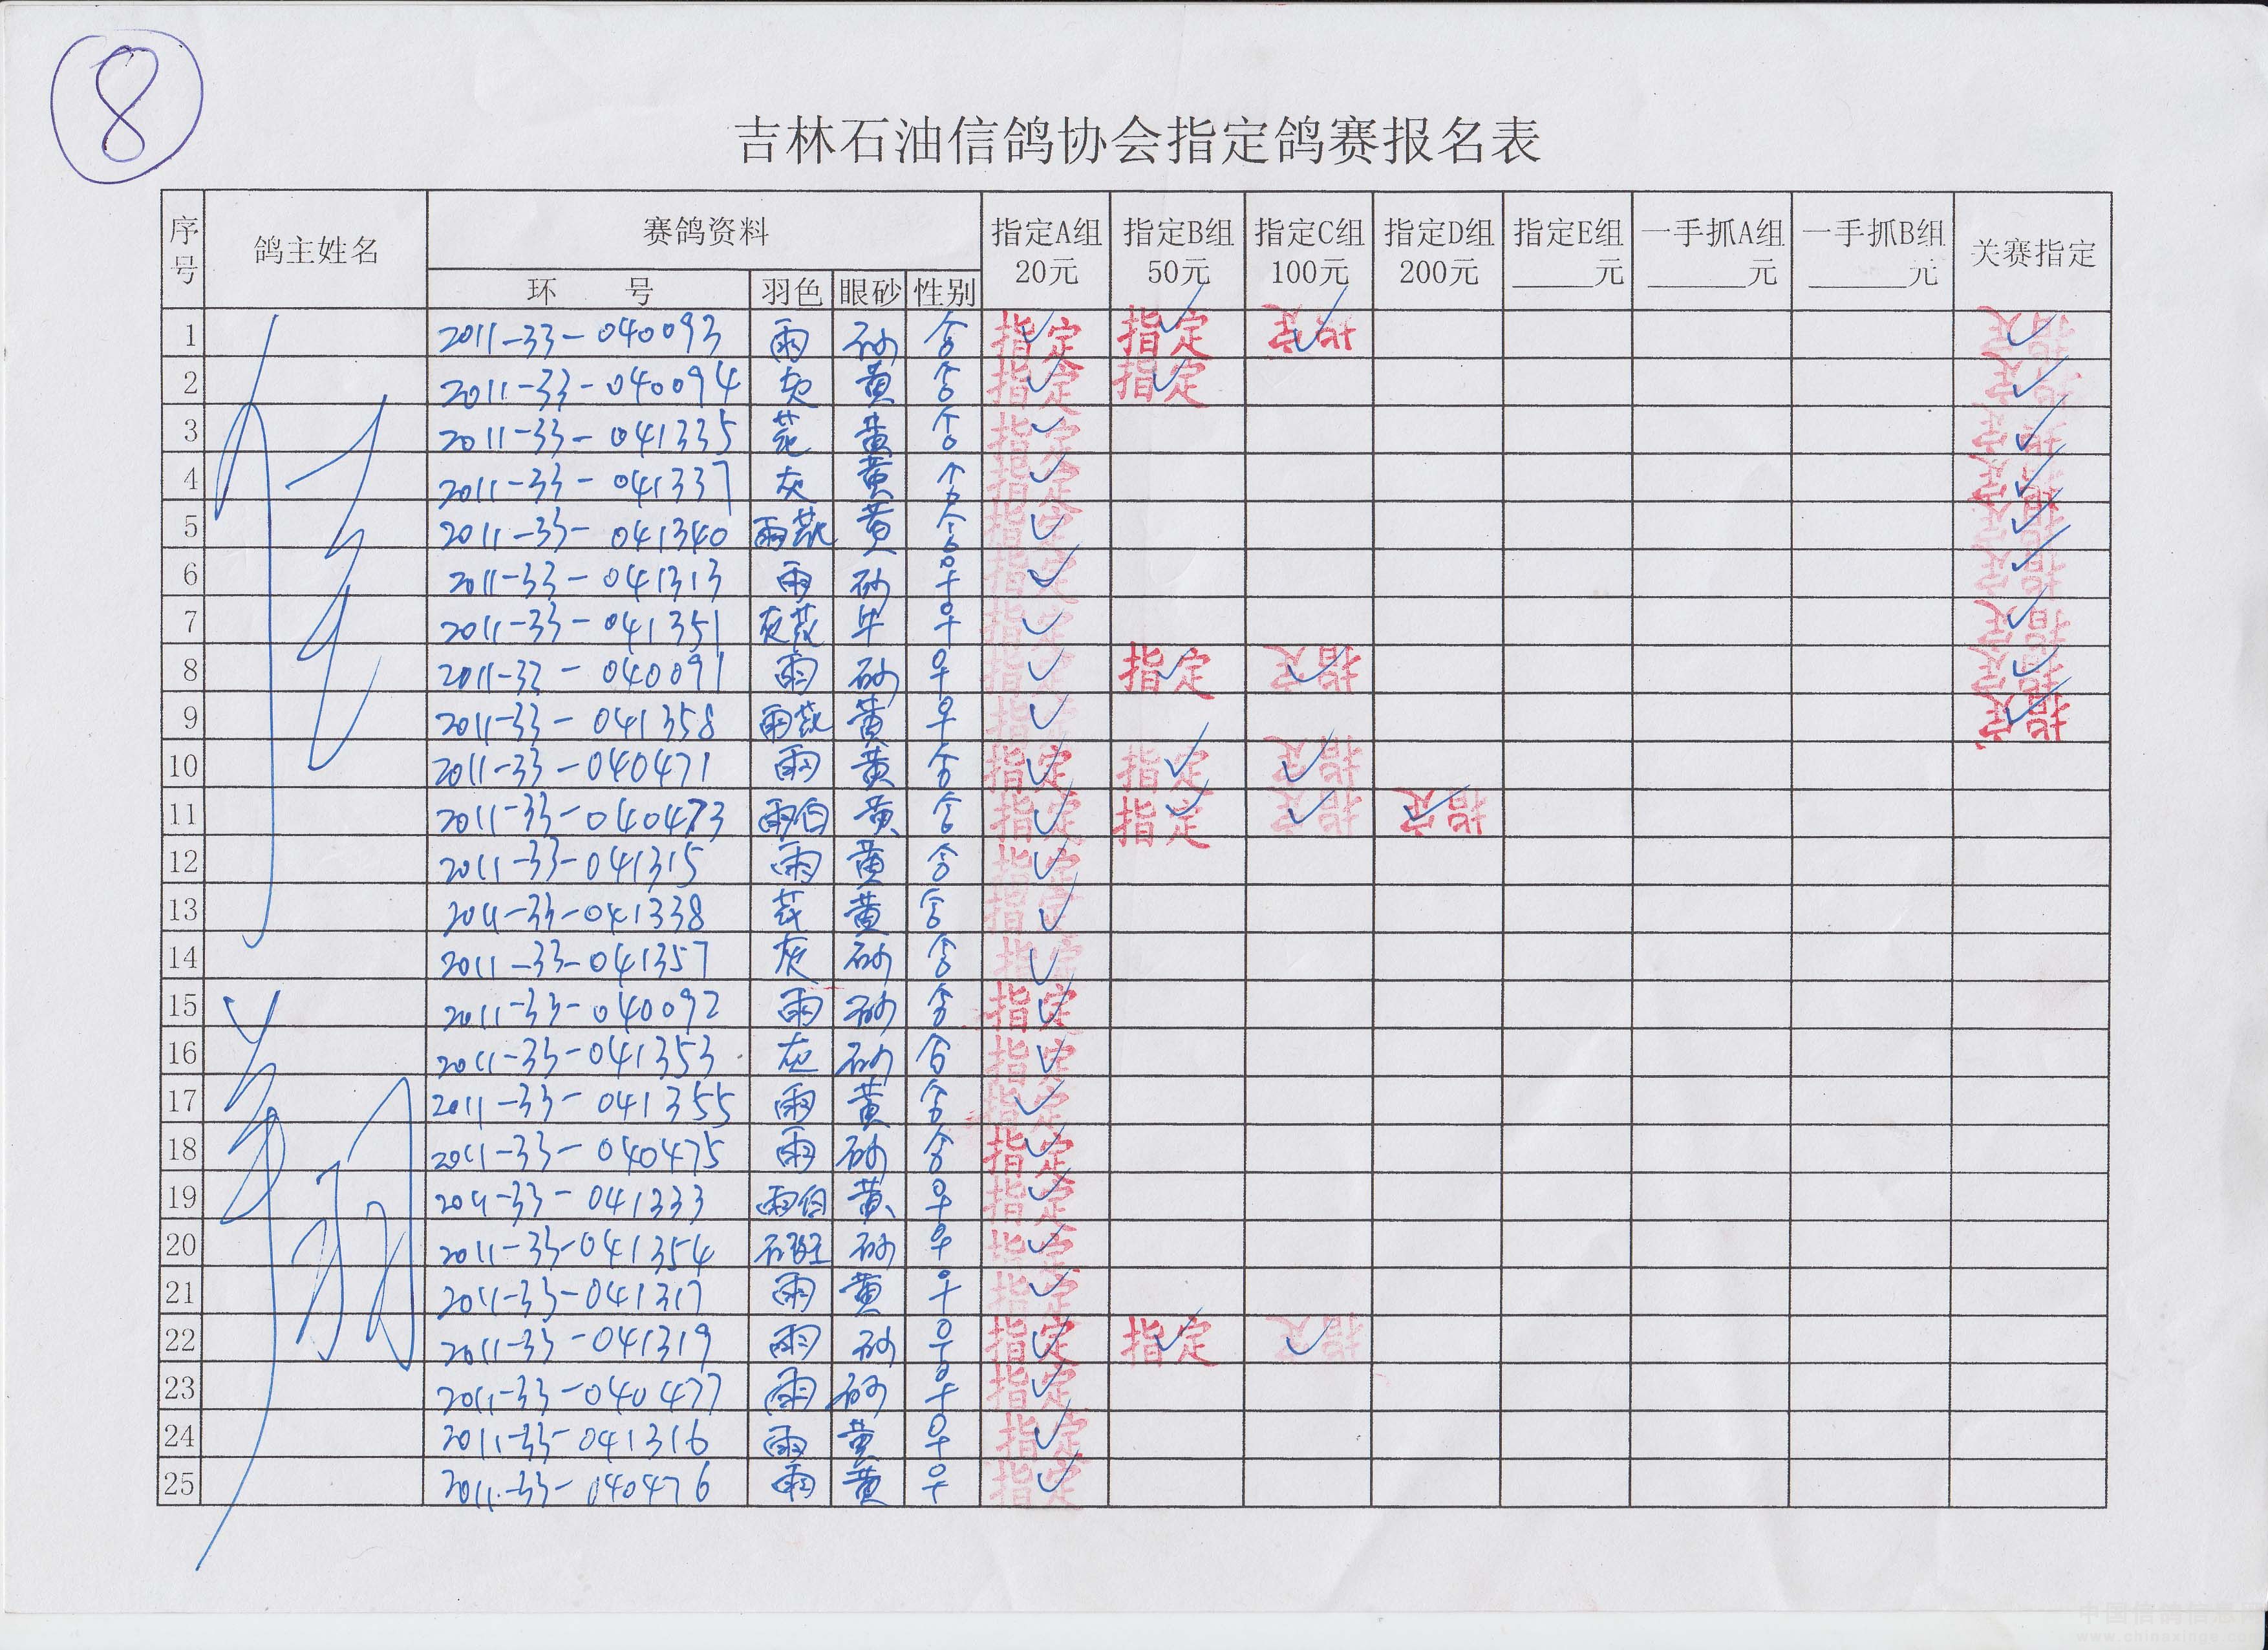 8
吉林石油信鸽协会指定鸽赛报名表
序号 鸽主姓名 赛鸽资料 指定A组 20元 指定B组 50元 指定C组 100元 指定D组 200元 指定E组 ____元 一手抓A组 ____元 一手抓B组 ____元 关赛指定
环 号 羽色 眼砂 性别
1 2011-33-040093 雨 砂 ✓ 指定 ✓ 指定 ✓ 指定 ✓ 指定
2 2011-33-040094 黄 ✓ 指定 ✓ 指定 ✓ 指定
3 2011-33-041335 花 黄 ✓ 指定 ✓ 指定
4 2011-33-041337 灰 黄 ✓ 指定 ✓ 指定
5 2011-33-041340 雨花 黄 ✓ 指定 ✓ 指定
6 2011-33-041313 雨 砂 ♀ ✓ 指定 ✓ 指定
7 2011-33-041351 灰花 牛 ♀ ✓ 指定 ✓ 指定
8 2011-33-040091 雨 砂 ♀ ✓ 指定 ✓ 指定 ✓ 指定 ✓ 指定
9 2011-33-041358 雨花 黄 ♀ ✓ 指定 ✓ 指定
10 2011-33-040471 雨 黄 ✓ 指定 ✓ 指定 ✓ 指定
11 2011-33-040473 雨白 黄 ✓ 指定 ✓ 指定 ✓ 指定 ✓ 指定
12 2011-33-041315 雨 黄 ✓ 指定
13 2011-33-041338 花 黄 ✓ 指定
14 2011-33-041357 灰 砂 ✓ 指定
15 2011-33-040092 雨 砂 ✓ 指定
16 2011-33-041353 灰 砂 ✓ 指定
17 2011-33-041355 雨 黄 ✓ 指定
18 2011-33-040475 雨 砂 ✓ 指定
19 2011-33-041333 雨白 黄 ♀ ✓ 指定
20 2011-33-041354 石斑 砂 ♀ ✓ 指定
21 2011-33-041317 雨 黄 ♀ ✓ 指定
22 2011-33-041319 雨 砂 ♀ ✓ 指定 ✓ 指定 ✓ 指定
23 2011-33-040477 雨 砂 ♀ ✓ 指定
24 2011-33-041316 雨 黄 ♀ ✓ 指定
25 2011-33-040476 雨 黄 ♀ ✓ 指定
中国信鸽信息网
www.chinaxinge.com